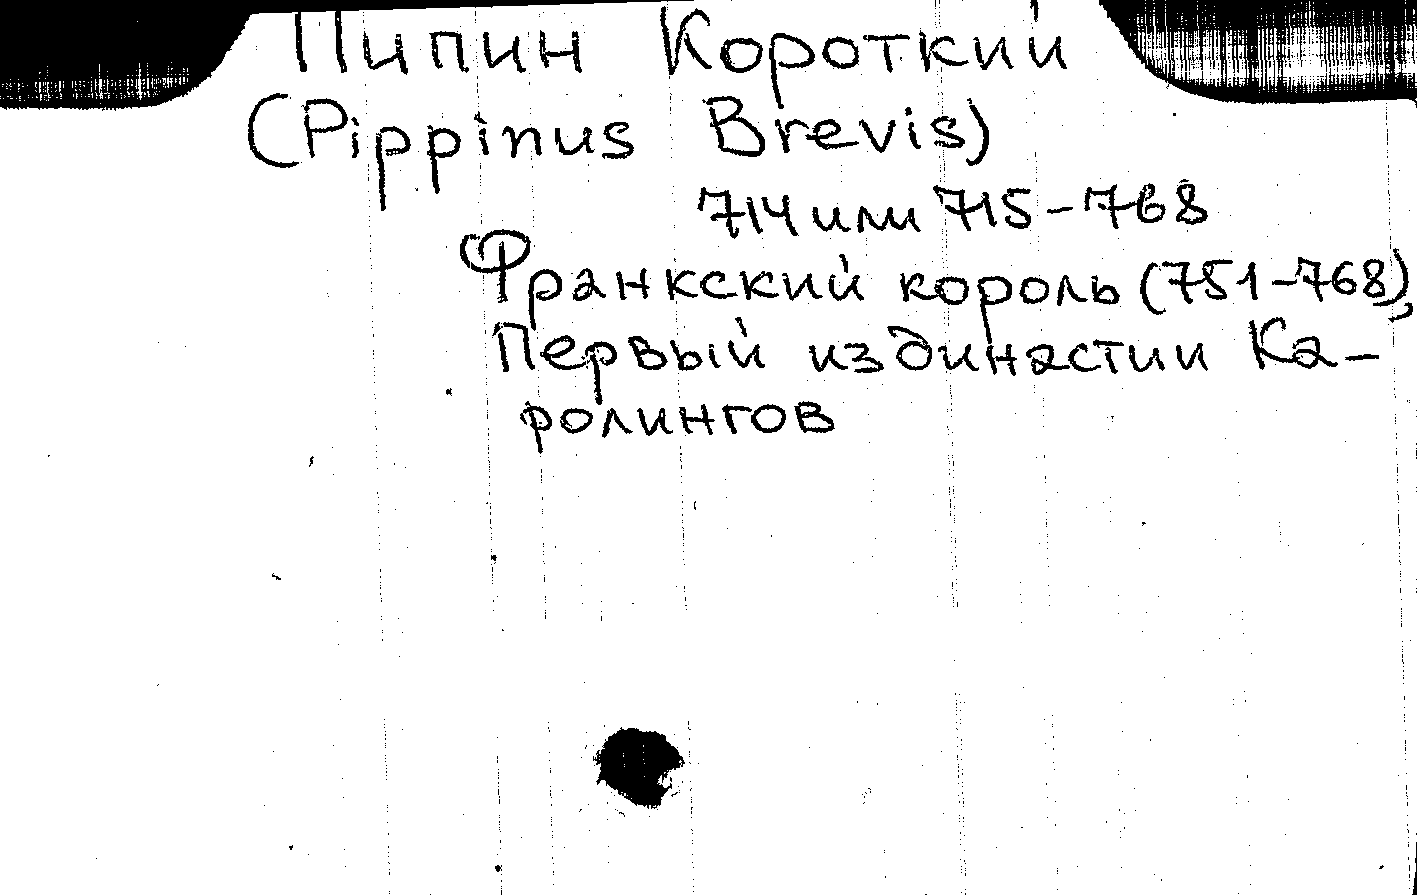 Пипин Короткий
(Pippinus Brevis)
714 или 715-768
Франкский король (751-768),
Первый из династии Ка-
ролингов